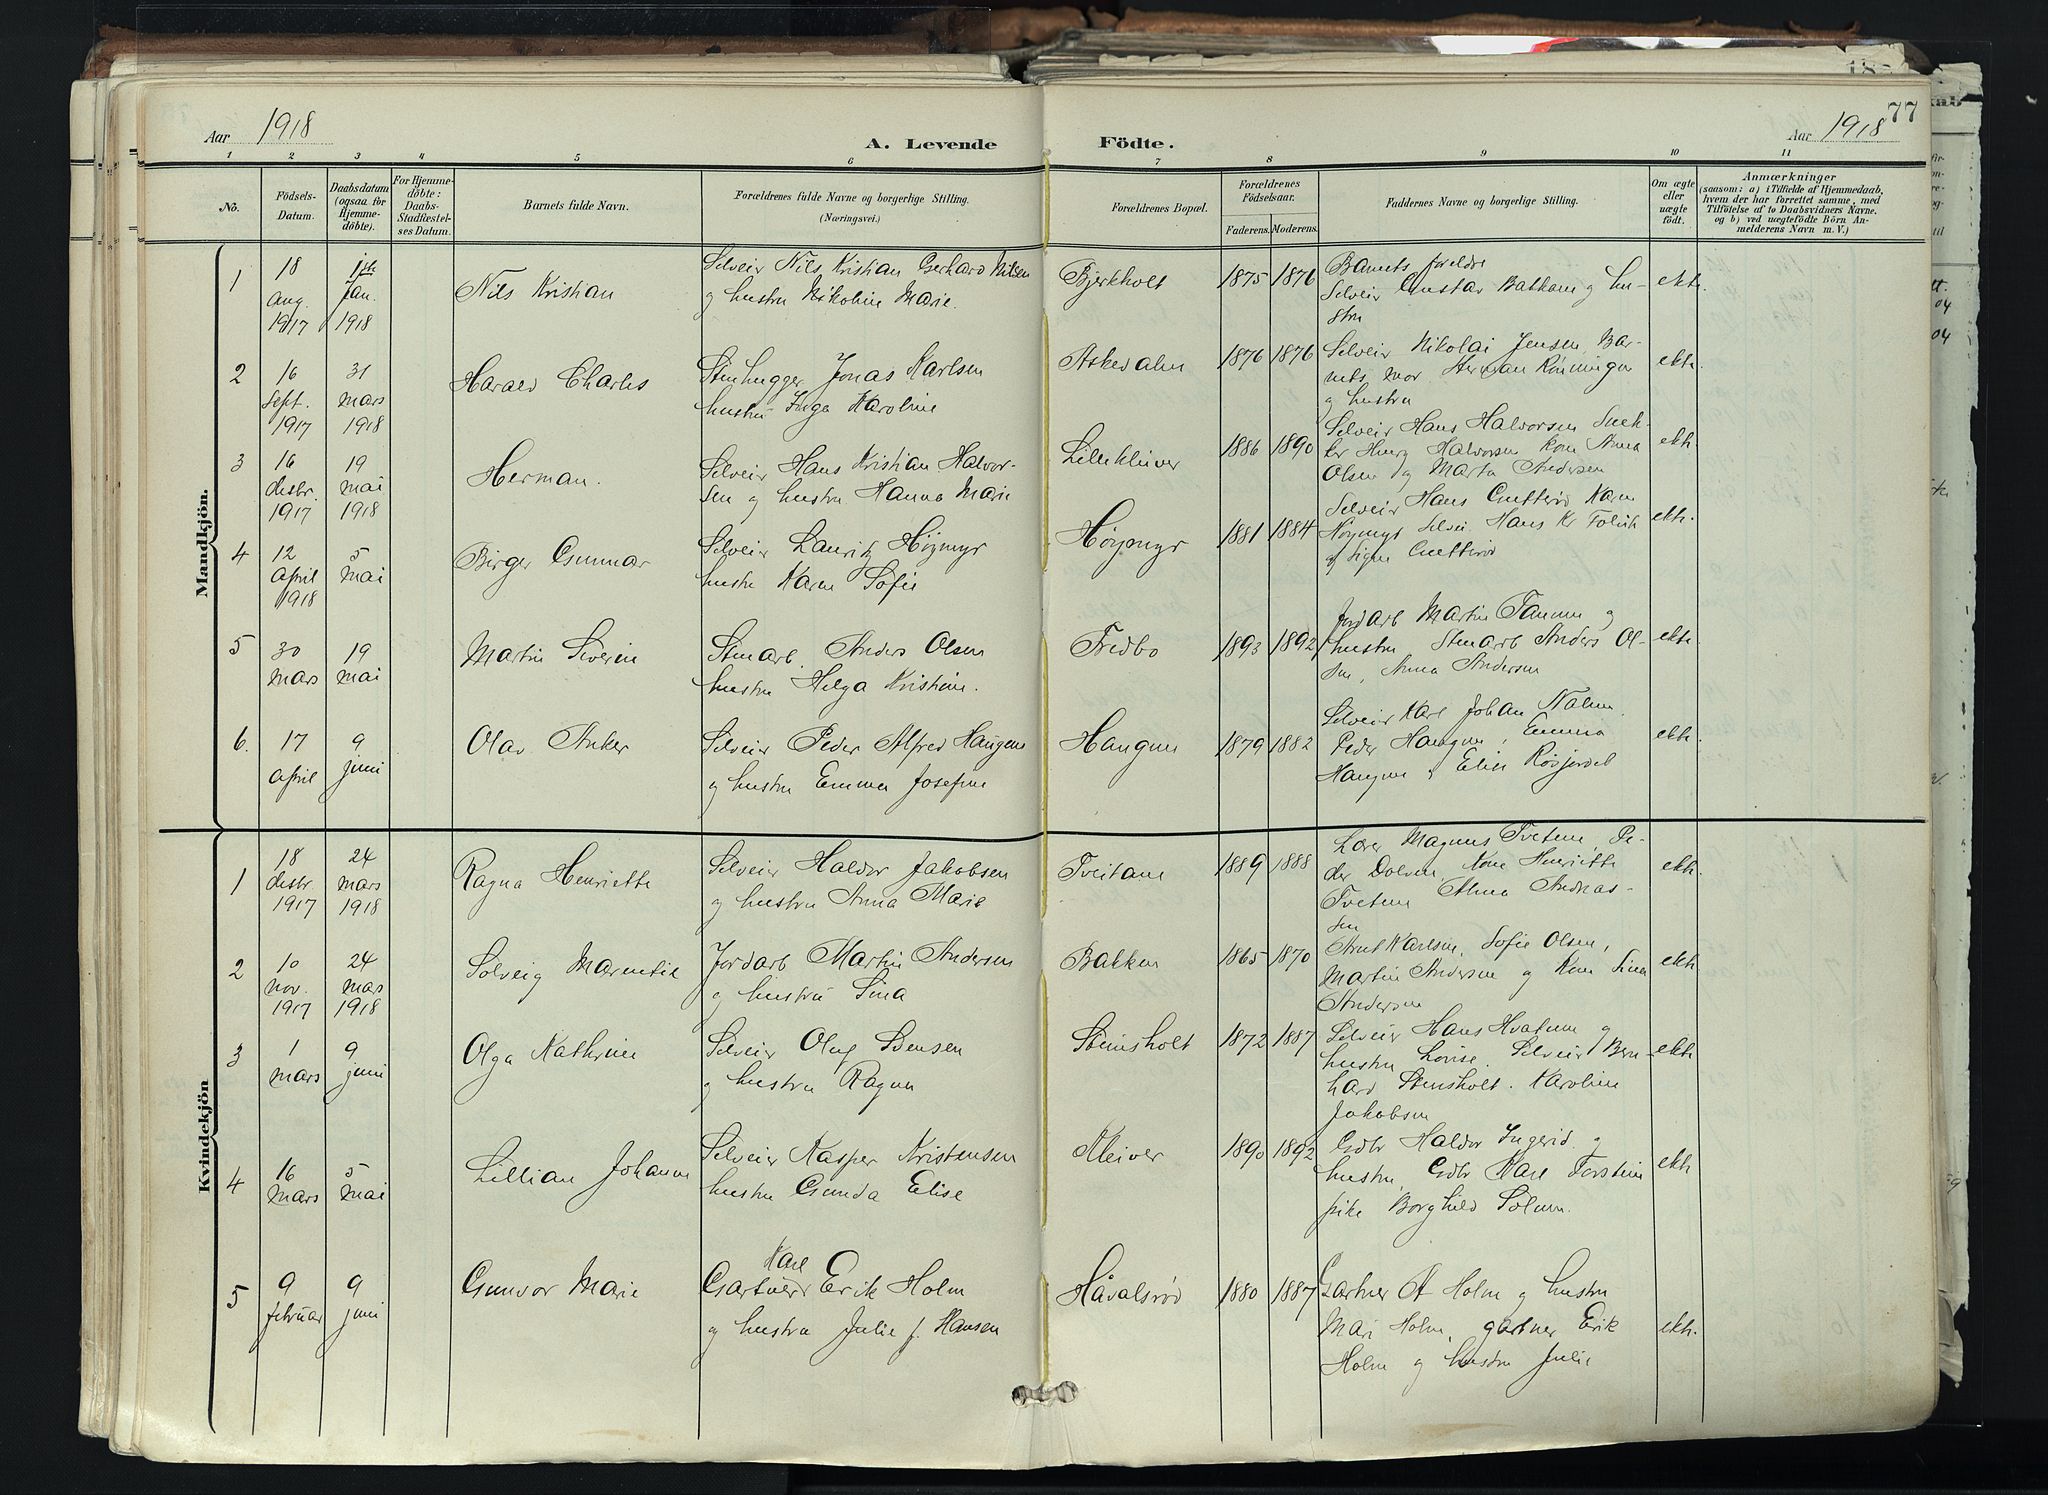 77
Aar 1918
A. Levende Födte.
Aar 1918
1 2 3 4 5 6 7 8 9 10 11
No.
Födsels-Datum.
Daabsdatum (ogsaa for Hjemme-döbte).
For Hjemme-döbte: Daabs-Stadfæstel-ses Datum.
Barnets fulde Navn.
Forældrenes fulde Navne og borgerlige Stilling. (Næringsvei.)
Forældrenes Bopæl.
Forældrenes Födselsaar.
Faderens. Moderens.
Faddernes Navne og borgerlige Stilling.
Om ægte eller uægte födt.
Anmærkninger
(saasom: a) i Tilfælde af Hjemmedaab,
hvem der har forrettet samme, med
Tilföielse af to Daabsvidners Navne,
og b) ved uægtefödte Börn An-
melderens Navn m. V.)
Mandkjön.
1
18 aug. 1917
1ste Jan. 1918
Nils Kristian
Selveier Nils Kristian Gerhard Nilsen
og hustru Nikoline Marie.
Bjerkholt
1875 1876
Barnets foreldre
Selveier Gustav Bakkane og hu-
stru
ekte.
2
16 sept. 1917
31 mars 1918
Harald Charles
Stenhugger Jonas Karlsen
hustru Inga Karoline
Askedalen
1876 1876
Selveier Nikolai Jensen, Bar-
nets mor. Herman Rönningen
og hustru
ekte
3
16 desbr. 1917
19 mai 1918
Herman.
Selveier Hans Kristian Halvor-
sen og hustru Hanna Marie
Lillekluver
1886 1890
Selveier Hans Halvorsen Snek-
ker Halvorsen kone Anna
Olsen og Marta Andersen
ekte
4
12 april 1918
5 mai
Birger Gunnar
Selveier Lauritz Höymyr
hustru Karen Sofie
Höymyr
1881 1884
Selveier Hans Karen
Höymyr Selvei. Hans Kr
og Signe
ekte.
5
30 mars
19 mai
Martin Severin
Stenarb. Anders Olsen
hustru Helga Kristine.
Fredbo
1893 1892
Jordarb Martin og
hustru Stenarb Anders Ol-
sen, Anna Andersen
ekte
6.
17 april
9 juni
Olav Anker
Selveier Peder Alfred Haugen
og hustru Emma Josefine
Haugen
1879 1882
Selveier Karl Johan
Peder Haugen, Emma
Haugen, Elise
ekte.
Kvindekjön
1
18 desbr. 1917
24 mars 1918
Ragna Henriette
Selveier Haldor Jakobsen
og hustru Anna Marie
Tveitane
1889 1888
Lærer Magnus Tvetene, Pe-
der Dolven, Kone Henriette
Tvetene Alma Andreas-
sen
ekte
2
10 nov. 1917
24 mars 1918
Solveig Marentie
Jordarb Martin Andersen
og hustru Sina
Bakken
1865 1870
Arnt Karlsen, Sofie Olsen,
Martin Andersen og Kone Sina
Andersen
ekte
3
1 mars
9 juni
Olga Kathrine
Selveier Oluf Sörensen
og hustru Ragna
Stensholt
1872 1887
Selveier Hans Hvatum og
hustru Lovise. Selveier Bern-
hard Stensholt. Karoline
Jakobsen
ekte
4
16 mars
5 mai
Lillian Johanne
Selveier Kasper Kristensen
hustru Gunda Elise
Kleiver
1890 1892
Gdbr Haldor Ingerid og
hustru, Gdbr Karl
pike Borghild
ekte
5
9 februar
9 juni
Gunvor Marie
Karl
Gartner Erik Holm
og hustru Julie f. Hansen
Håvalsröd
1880 1887
Gartner A Holm og hustru
Mari Holm, gartner Erik
Holm og hustru Julie
ekte.